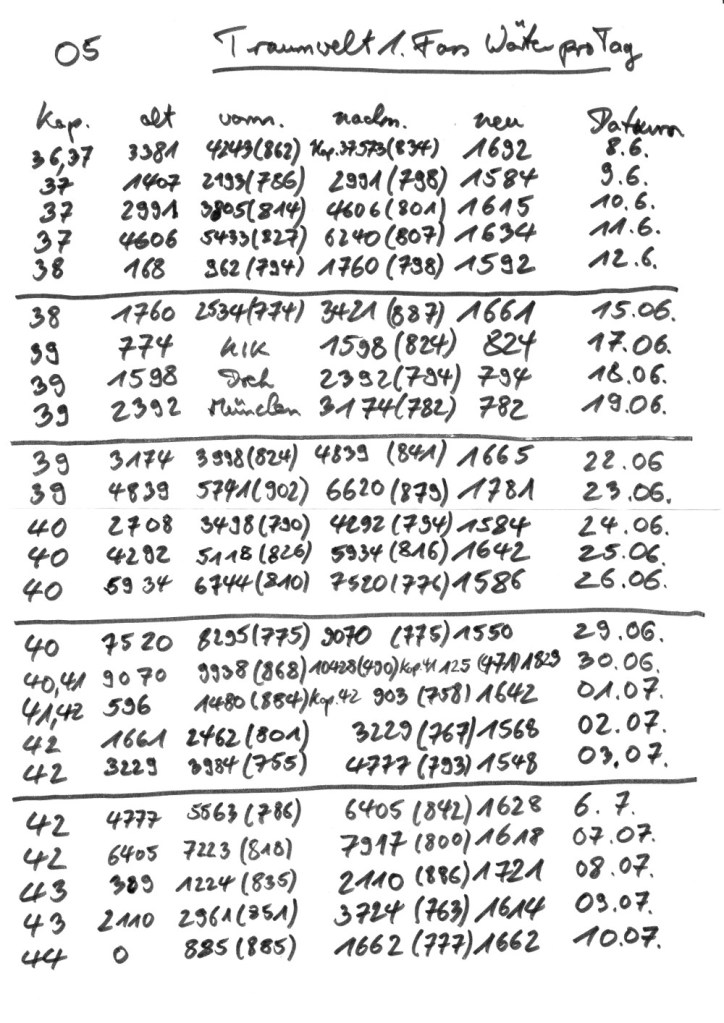 05 Traumwelt 1. Fass Wörter pro Tag
Kap. alt vorm. nachm. neu Datum
36,37 3381 4243(862) Kap.37 573(834) 1692 8.6.
37 1407 2193(786) 2991(798) 1584 9.6.
37 2991 3805(814) 4606(801) 1615 10.6.
37 4606 5433(827) 6240(807) 1634 11.6.
38 168 962(794) 1760(798) 1592 12.6.
38 1760 2534(774) 3421(887) 1661 15.06.
39 774 KIK 1598(824) 824 17.06.
39 1598 Dreh 2392(794) 794 18.06.
39 2392 München 3174(782) 782 19.06.
39 3174 3998(824) 4839 (841) 1665 22.06
39 4839 5741(902) 6620(879) 1781 23.06.
40 2708 3498(790) 4292(794) 1584 24.06.
40 4292 5118(826) 5934(816) 1642 25.06.
40 5934 6744(810) 7520(776) 1586 26.06.
40 7520 8295(775) 9070 (775) 1550 29.06.
40,41 9070 9938(868) 10428(490) Kap.41 125 (471) 1829 30.06.
41,42 596 1480(884) Kap.42 903 (758) 1642 01.07.
42 1661 2462(801) 3229(767) 1568 02.07.
42 3229 3984(755) 4777(793) 1548 03.07.
42 4777 5563(786) 6405(842) 1628 6.7.
42 6405 7223(818) 7917(800) 1618 07.07.
43 389 1224(835) 2110(886) 1721 08.07.
43 2110 2961(851) 3724(763) 1614 09.07.
44 0 885(885) 1662(777) 1662 10.07.